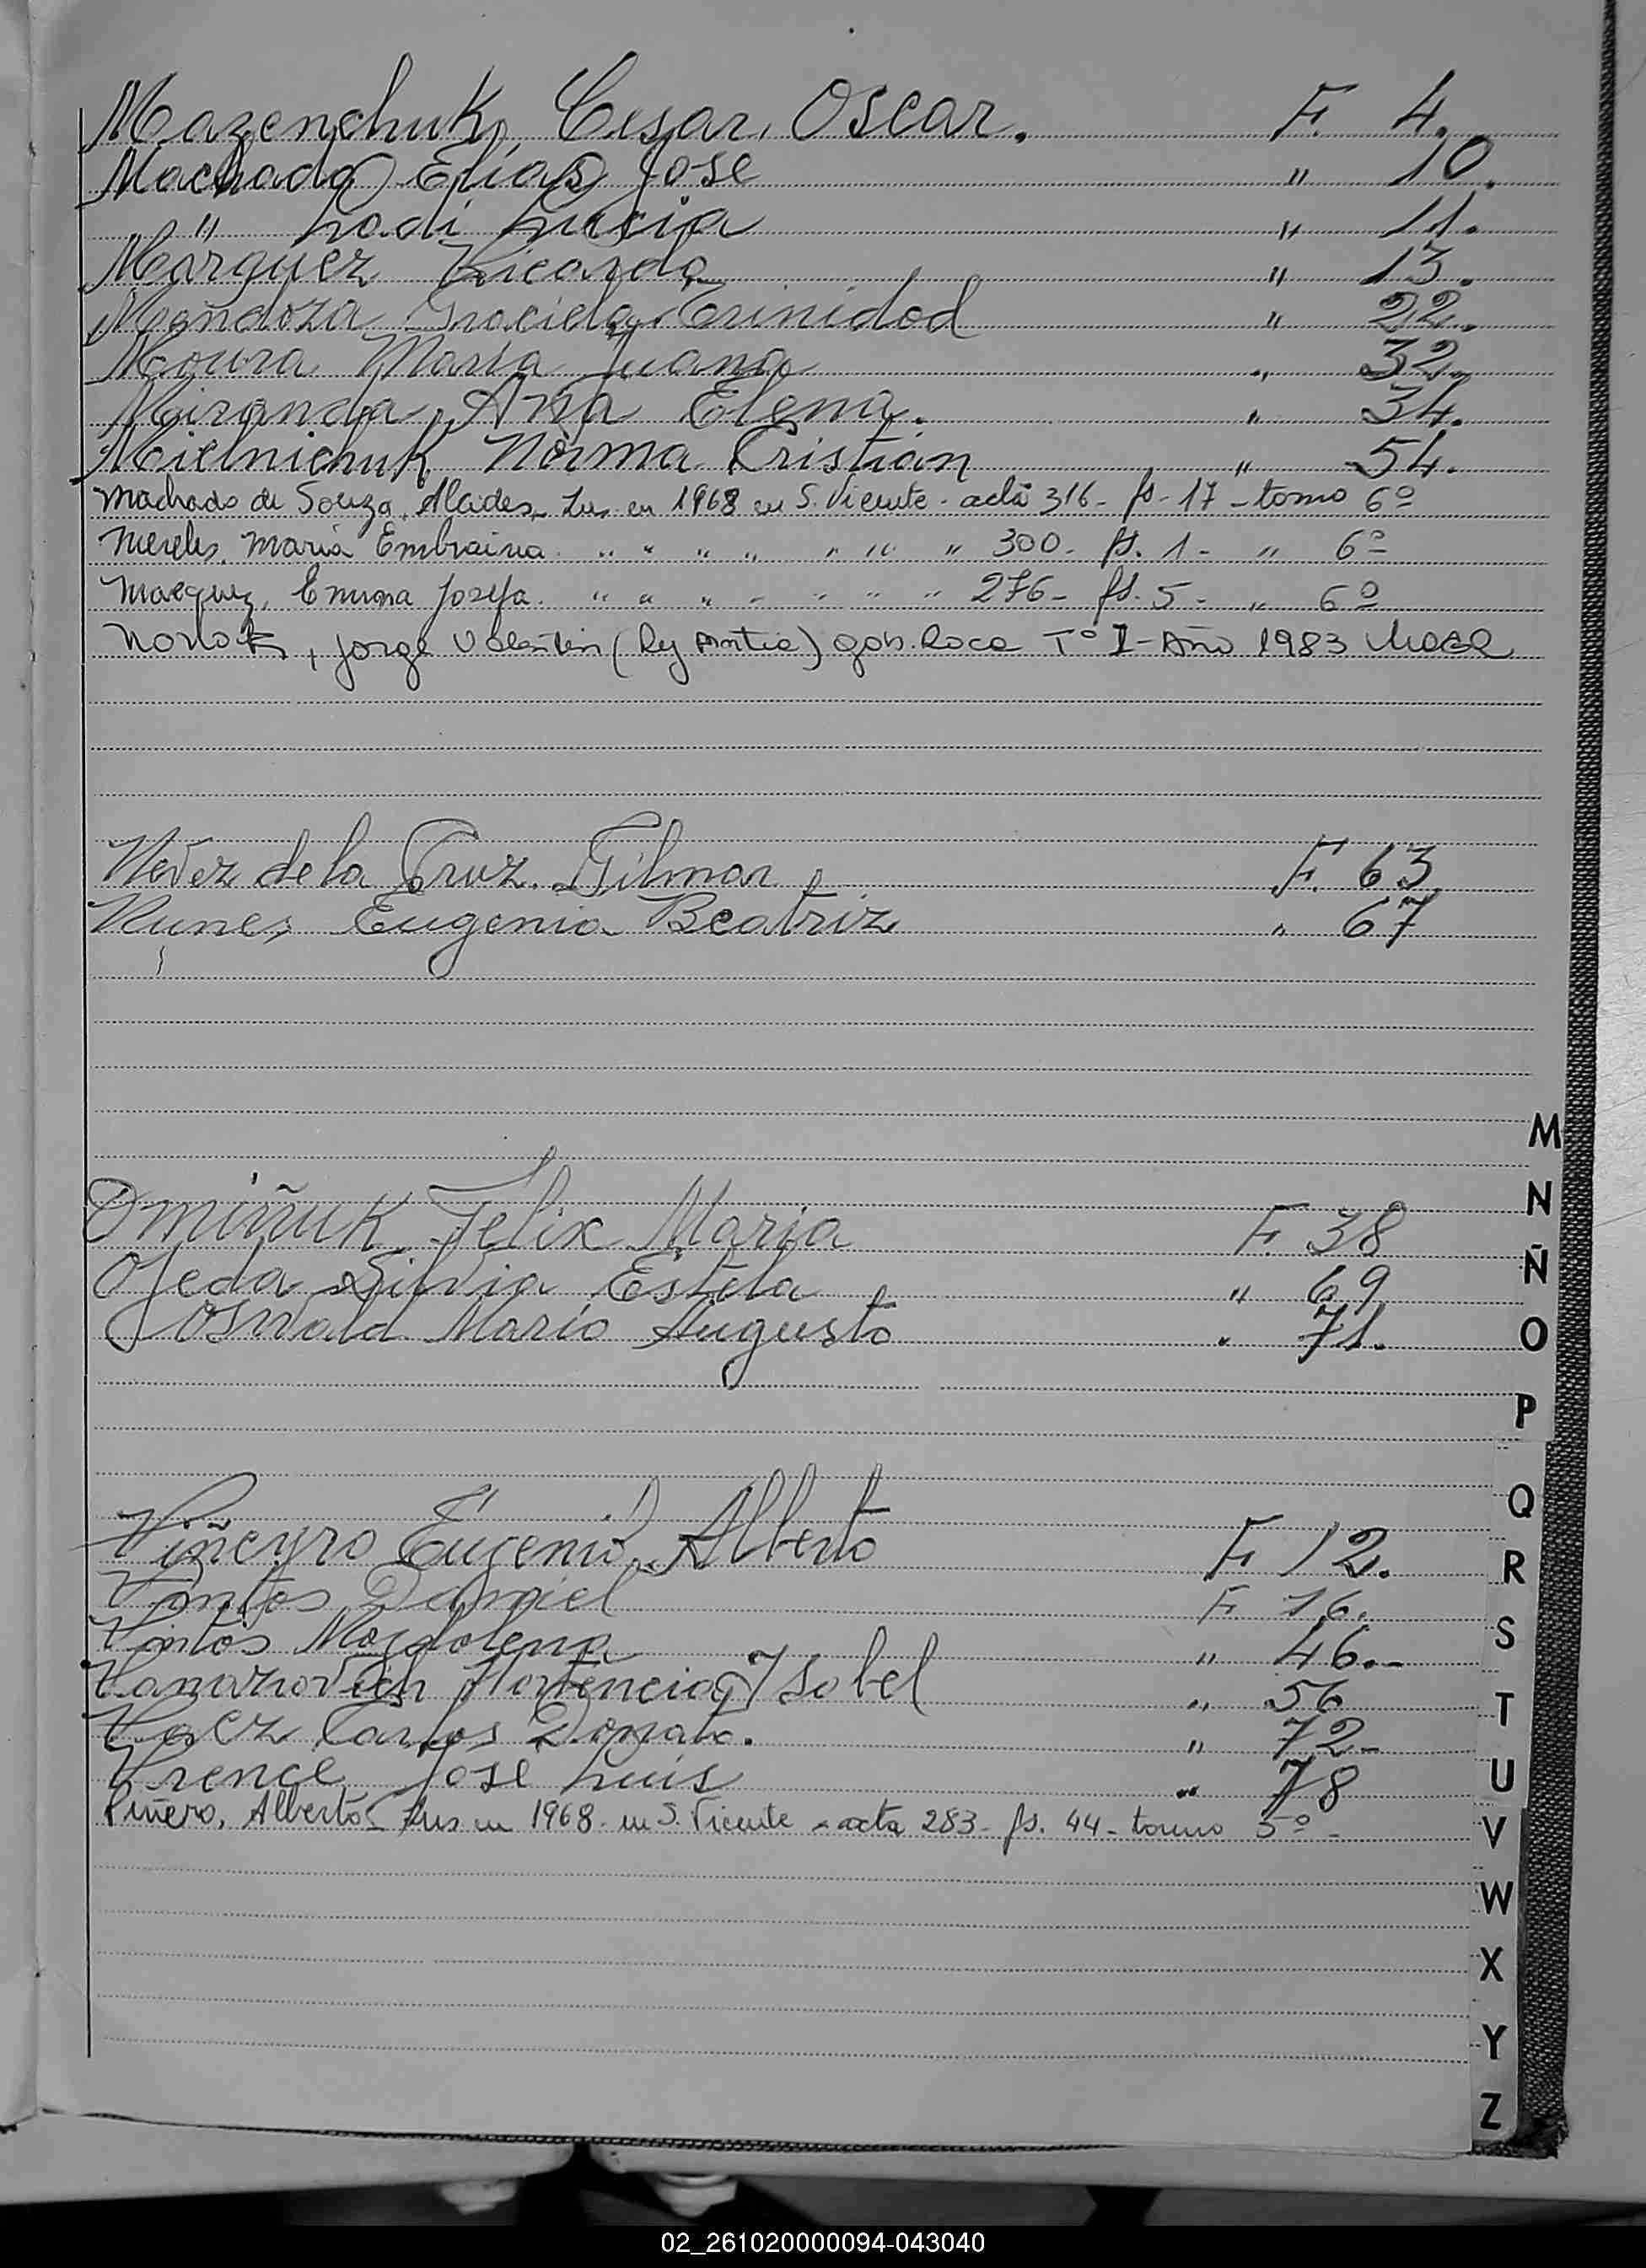 Mazenchuk, Cesar, Oscar. F. 4.
Machado Elias Jose " 10.
" Ladi Lucia " 11.
Marquez Ricardo " 13.
Mendoza Graciela Trinidad " 22.
Moura Maria Juana " 32.
Miranda, Ana Elena. " 34.
Mielnichuk Norma Cristian " 54.
Machado de Souza, Alcides - Ins en 1968 en S. Vicente - acta 316 - fs - 17 - tomo 6º
Mereles, Maria " " " " " " " 300 - fs. 1 - " 6º
Marquez, Emma Josefa. " " " " " " " 276 - fs. 5 - " 6º
, Jorge Valentin (Ley ) gob. Roca Tº I - Año 1983
Nevez de la Cruz. Gilmar F. 63
Nunes Eugenia Beatriz " 67
Omiñuk Felix Maria F. 38
Ojeda Silvia Estela " 69
Oswald Mario Augusto " 71.
Piñeyro Eugenio Alberto F. 12.
Pintos Daniel F. 16.
Pintos Magdalena " 46.-
Hortencia Ysabel " 56
Paez Carlos Donato. " 72-
Prence Jose Luis " 78
Piñero, Alberto - Ins en 1968 - en S. Vicente - acta 283 - fs. 44 - tomo 5º -
M
N
Ñ
O
P
Q
R
S
T
U
V
W
X
Y
Z
02_261020000094-043040